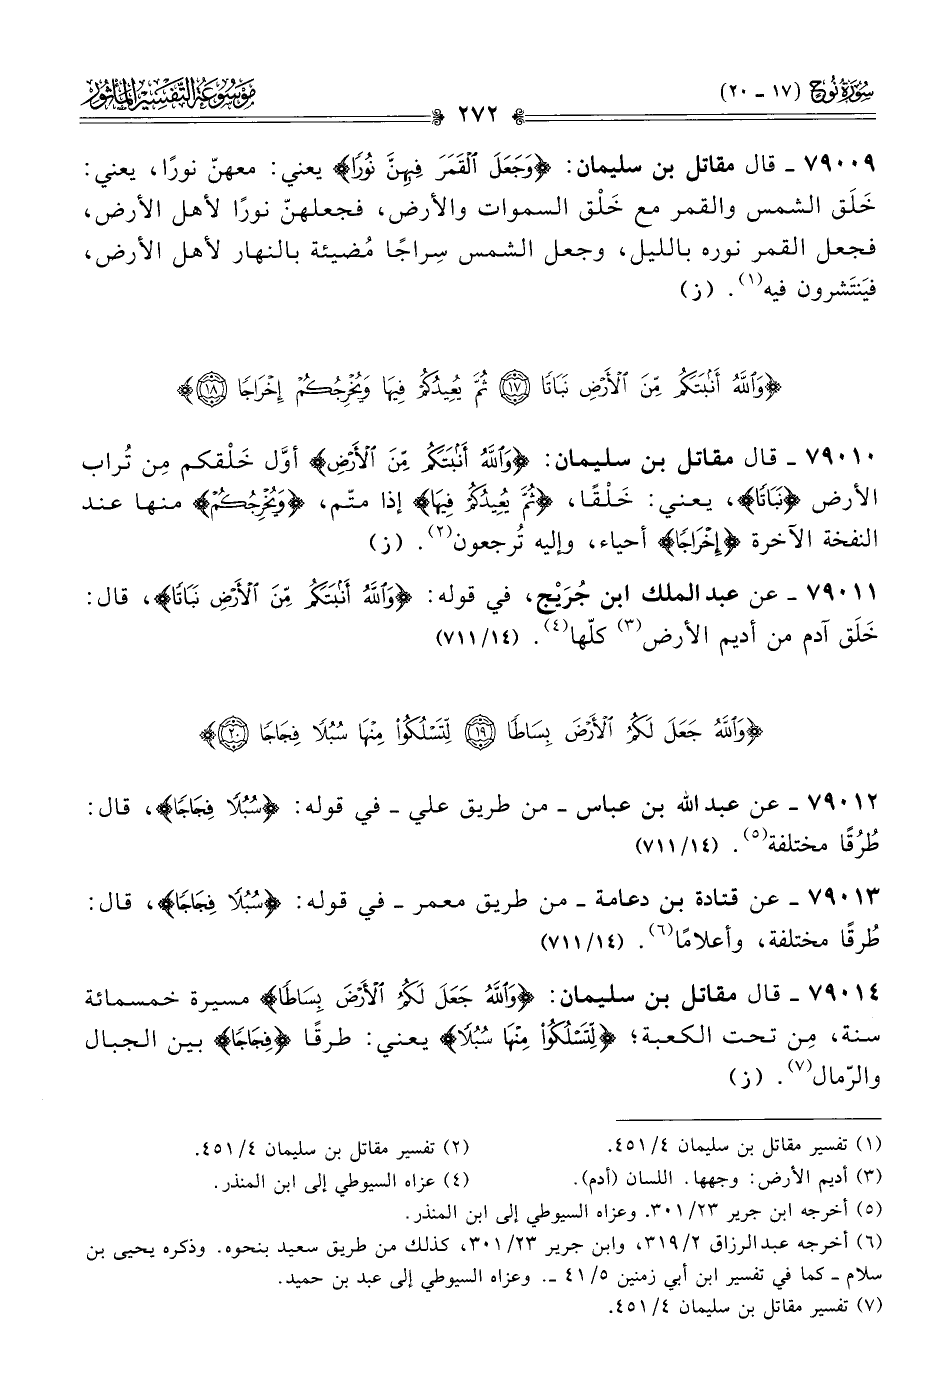 سُورَةُ نُوحٍ (١٧ - ٢٠)
٢٧٢
مَوْسُوعَةُ التَّفْسِيرِ المَأْثُورِ
٧٩٠٠٩ - قال مقاتل بن سليمان: ﴿وَجَعَلَ ٱلْقَمَرَ فِيهِنَّ نُورًا﴾ يعني: معهنّ نورًا، يعني:
خَلَق الشمس والقمر مع خَلْق السموات والأرض، فجعلهنّ نورًا لأهل الأرض،
فجعل القمر نوره بالليل، وجعل الشمس سِراجًا مُضيئة بالنهار لأهل الأرض،
فيَنتَشرون فيه(١). (ز)
﴿وَٱللَّهُ أَنۢبَتَكُم مِّنَ ٱلْأَرْضِ نَبَاتًا ١٧ ثُمَّ يُعِيدُكُمْ فِيهَا وَيُخْرِجُكُمْ إِخْرَاجًا ١٨﴾
٧٩٠١٠ - قال مقاتل بن سليمان: ﴿وَٱللَّهُ أَنۢبَتَكُم مِّنَ ٱلْأَرْضِ﴾ أوَّل خَلْقكم مِن تُراب
الأرض ﴿نَبَاتًا﴾، يعني: خَلْقًا، ﴿ثُمَّ يُعِيدُكُمْ فِيهَا﴾ إذا متّم، ﴿وَيُخْرِجُكُمْ﴾ منها عند
النفخة الآخرة ﴿إِخْرَاجًا﴾ أحياء، وإليه تُرجعون(٢). (ز)
٧٩٠١١ - عن عبد الملك ابن جُرَيْج، في قوله: ﴿وَٱللَّهُ أَنۢبَتَكُم مِّنَ ٱلْأَرْضِ نَبَاتًا﴾، قال:
خَلَق آدم من أديم الأرض(٣) كلّها(٤). (٧١١/١٤)
﴿وَٱللَّهُ جَعَلَ لَكُمُ ٱلْأَرْضَ بِسَاطًا ١٩ لِّتَسْلُكُوا۟ مِنْهَا سُبُلًا فِجَاجًا ٢٠﴾
٧٩٠١٢ - عن عبد الله بن عباس - من طريق علي - في قوله: ﴿سُبُلًا فِجَاجًا﴾، قال:
طُرُقًا مختلفة(٥). (٧١١/١٤)
٧٩٠١٣ - عن قتادة بن دعامة - من طريق معمر - في قوله: ﴿سُبُلًا فِجَاجًا﴾، قال:
طُرقًا مختلفة، وأعلامًا(٦). (٧١١/١٤)
٧٩٠١٤ - قال مقاتل بن سليمان: ﴿وَٱللَّهُ جَعَلَ لَكُمُ ٱلْأَرْضَ بِسَاطًا﴾ مسيرة خمسمائة
سنة، مِن تحت الكعبة؛ ﴿لِّتَسْلُكُوا۟ مِنْهَا سُبُلًا﴾ يعني: طرقًا ﴿فِجَاجًا﴾ بين الجبال
والرّمال(٧). (ز)
(١) تفسير مقاتل بن سليمان ٤/ ٤٥١.
(٢) تفسير مقاتل بن سليمان ٤/ ٤٥١.
(٣) أديم الأرض: وجهها. اللسان (أدم).
(٤) عزاه السيوطي إلى ابن المنذر.
(٥) أخرجه ابن جرير ٢٣/ ٣٠١. وعزاه السيوطي إلى ابن المنذر.
(٦) أخرجه عبد الرزاق ٢/ ٣١٩، وابن جرير ٢٣/ ٣٠١، كذلك من طريق سعيد بنحوه. وذكره يحيى بن
سلام - كما في تفسير ابن أبي زمنين ٥/ ٤١ -. وعزاه السيوطي إلى عبد بن حميد.
(٧) تفسير مقاتل بن سليمان ٤/ ٤٥١.